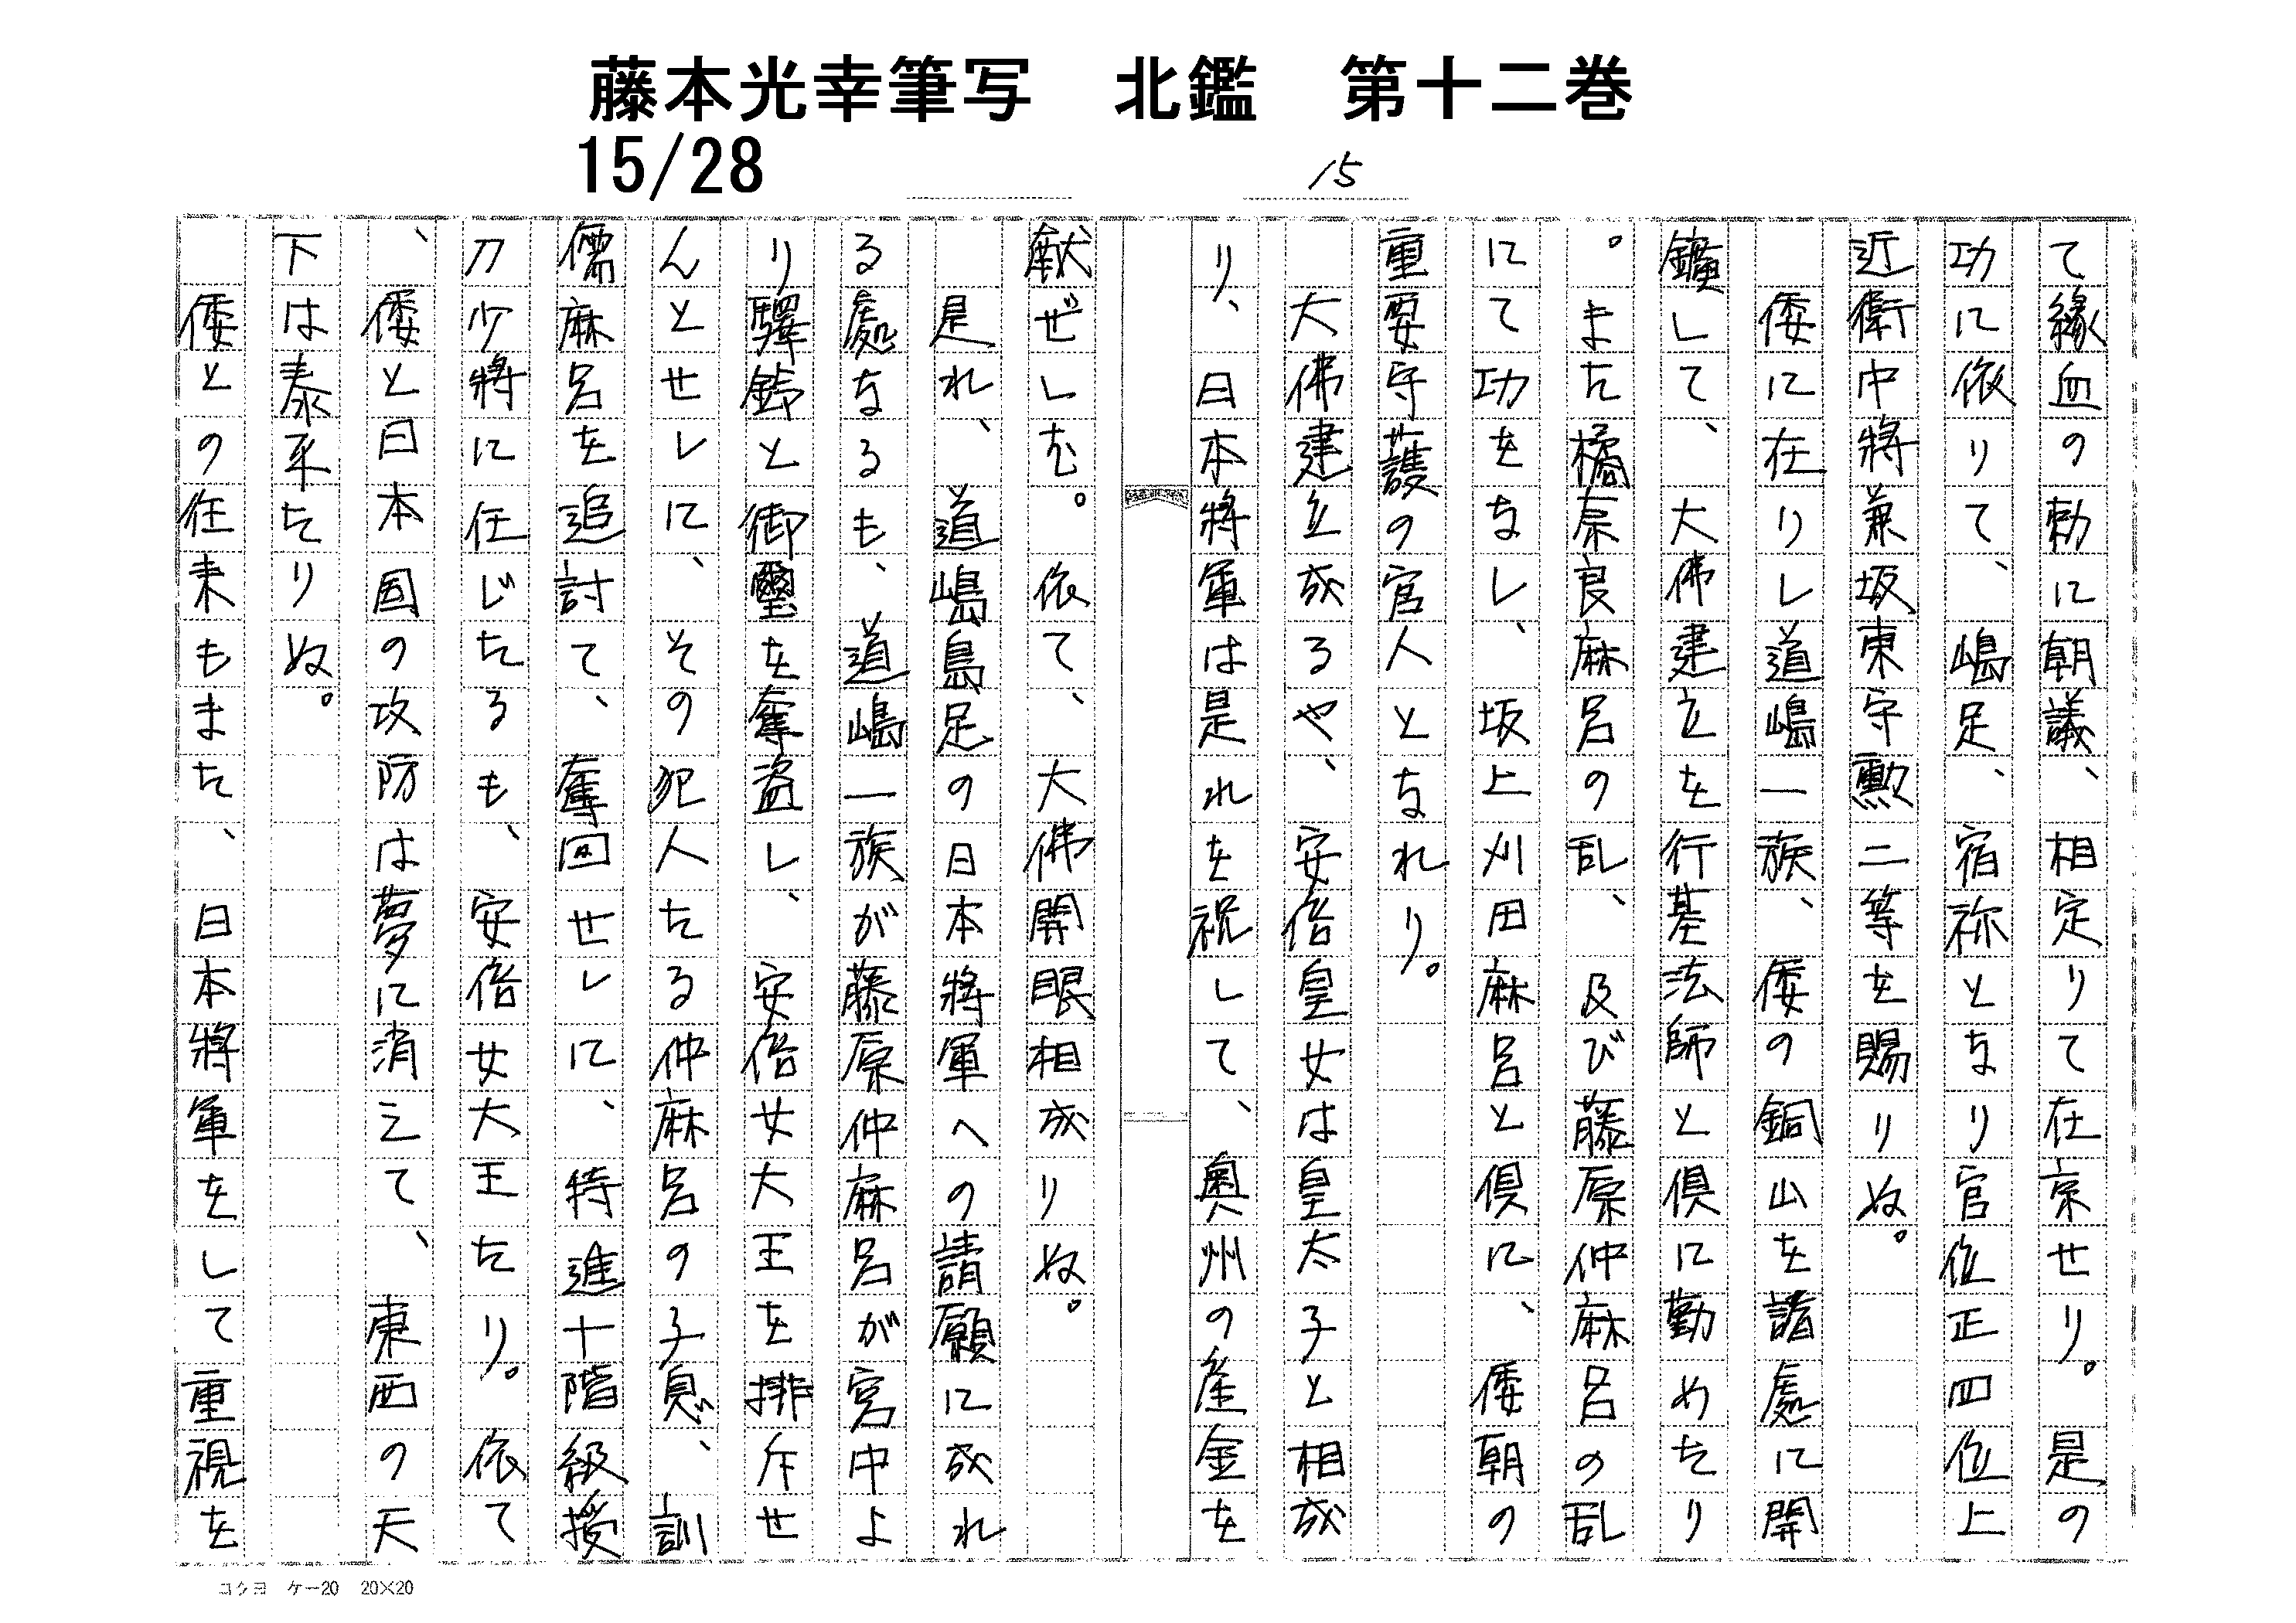 藤本光幸筆写　北鑑　第十二巻
15/28
15
て縁血の勅に朝議、相定りて在京せり。是の
功に依りて、嶋足、宿祢となり官位正四位上
近衛中將兼坂東守勲二等を賜りぬ。
倭に在りし道嶋一族、倭の銅山を諸處に開
鑛して、大佛建立を行基法師と倶に勤めたり
。また橘奈良麻呂の乱、及び藤原仲麻呂の乱
にて功をなし、坂上刈田麻呂と倶に、倭朝の
重要守護の官人となれり。
大佛建立成るや、安倍皇女は皇太子と相成
り、日本將軍は是れを祝して、奥州の産金を
献ぜしむ。依て、大佛開眼相成りぬ。
是れ、道嶋島足の日本將軍への請願に成れ
る處なるも、道嶋一族が藤原仲麻呂が宮中よ
り驛鈴と御璽を奪盗し、安倍女大王を排斥せ
んとせしに、その犯人たる仲麻呂の子息、訓
儒麻呂を追討て、奪回せしに、特進十階級授
刀少將に任じたるも、安倍女大王たり。依て
、倭と日本国の攻防は夢に消えて、東西の天
下は泰平たりぬ。
倭との往来もまた、日本將軍をして重視を
コクヨ　ケー20　20×20